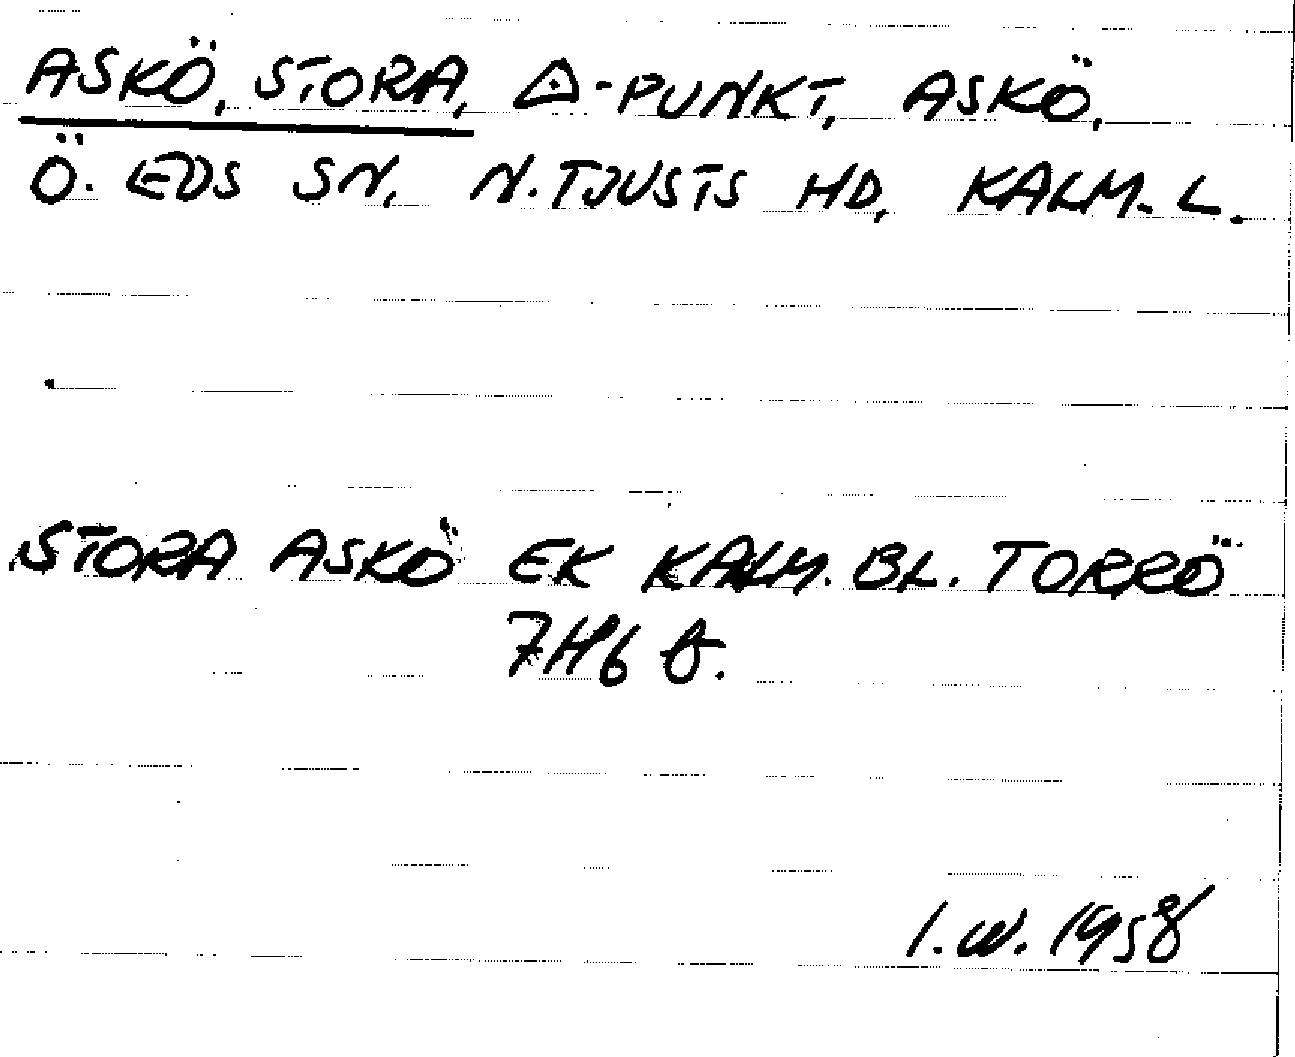 ASKÖ, STORA, △-PUNKT, ASKÖ,
Ö. EDS SN, N. TJUSTS HD, KALM. L.
STORA ASKÖ EK KALM. BL. TORRÖ
7H6 f.
I.W. 1958